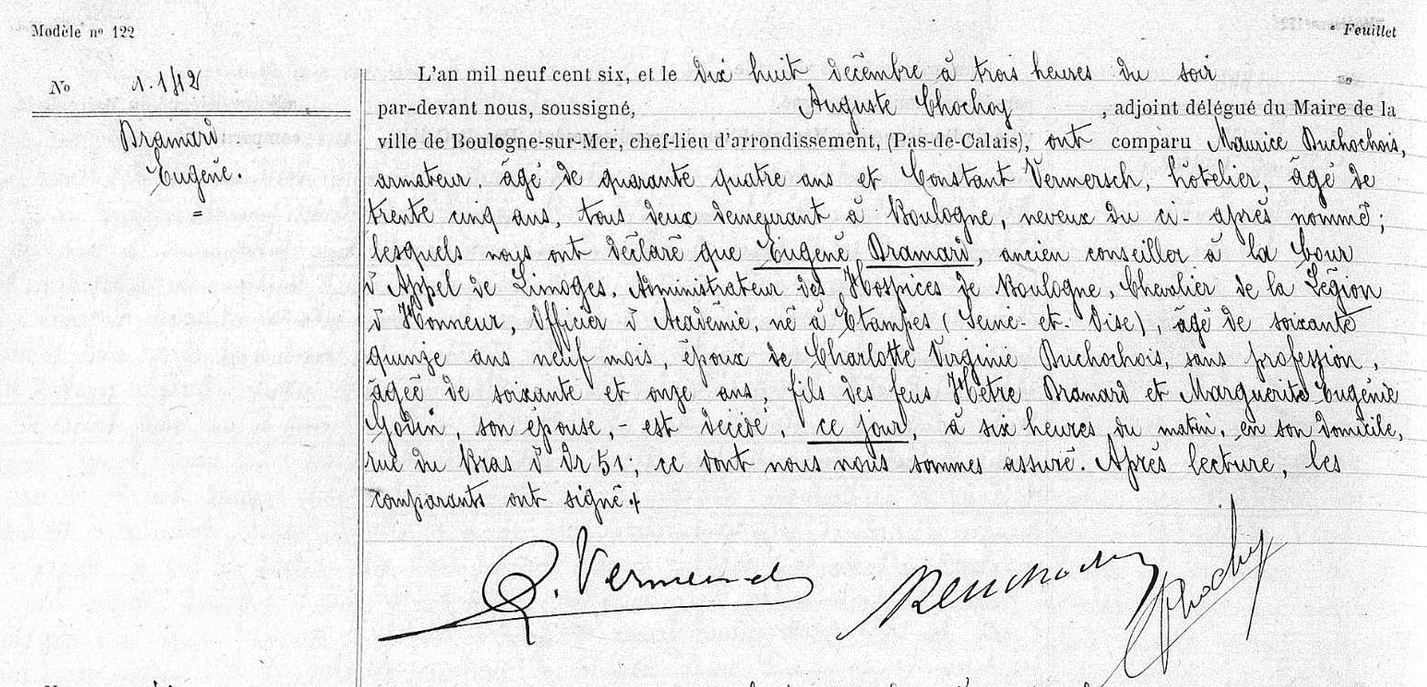 Modèle nº 122
Feuillet
Nº 1.142
Bramard
Eugène.
L'an mil neuf cent six, et le dix huit décembre à trois heures du soir
par-devant nous, soussigné, Auguste Chochoy, adjoint délégué du Maire de la
ville de Boulogne-sur-Mer, chef-lieu d'arrondissement, (Pas-de-Calais), ont comparu Maurice Buchochois,
armateur âgé de quarante quatre ans et Constant Vermersch, hôtelier, âgé de
trente cinq ans, tous deux demeurant à Boulogne, neveux du ci-après nommé;
lesquels nous ont déclaré que Eugène Dramard, ancien conseiller à la Cour
d'Appel de Limoges, Administrateur des Hospices de Boulogne, Chevalier de la Légion
d'Honneur, Officier d'Académie, né à Etampes (Seine-et-Oise), âgé de soixante
quinze ans neuf mois, époux de Charlotte Virginie Buchochois, sans profession,
âgée de soixante et onze ans, fils des feus Dramard et Marguerite Eugénie
Godin, son épouse, - est décédé, ce jour, à six heures du matin, en son domicile,
rue du Bras d'Or 51, ce dont nous nous sommes assuré. Après lecture, les
comparants ont signé
C. Vermersch Buchochois Chochoy